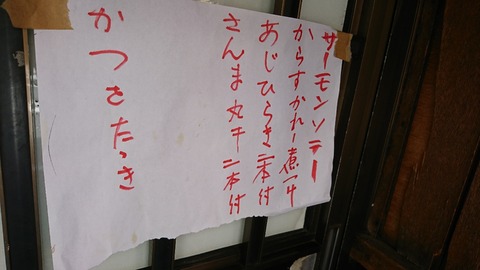 サーモンソテー
からすかれー煮付
あじひらき二本付
さんま丸干二本付
かつをたたき